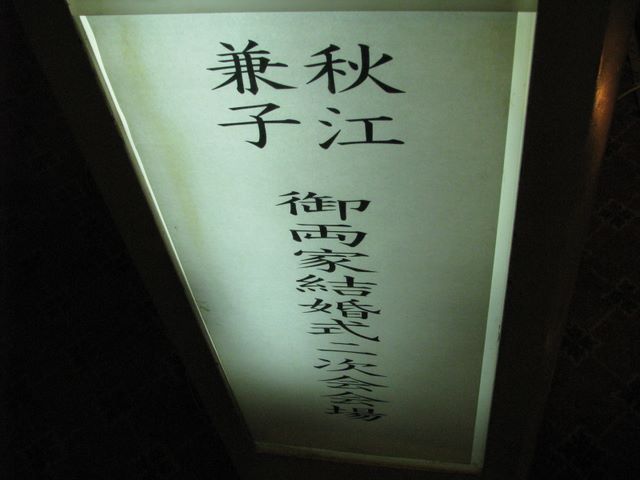 秋江
兼子
御両家結婚式二次会会場